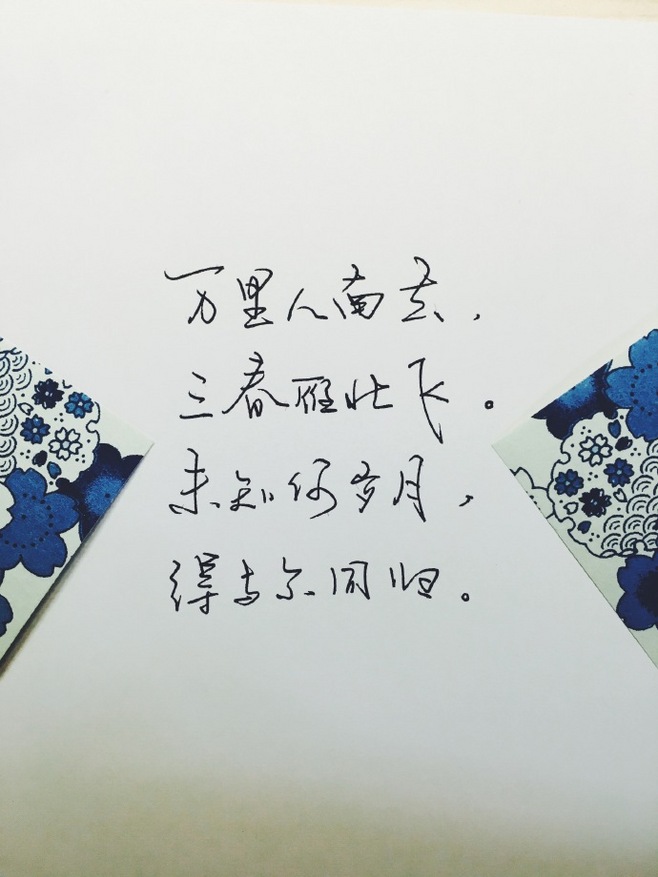 万里人南去，
三春雁北飞。
未知何岁月，
得与尔同归。